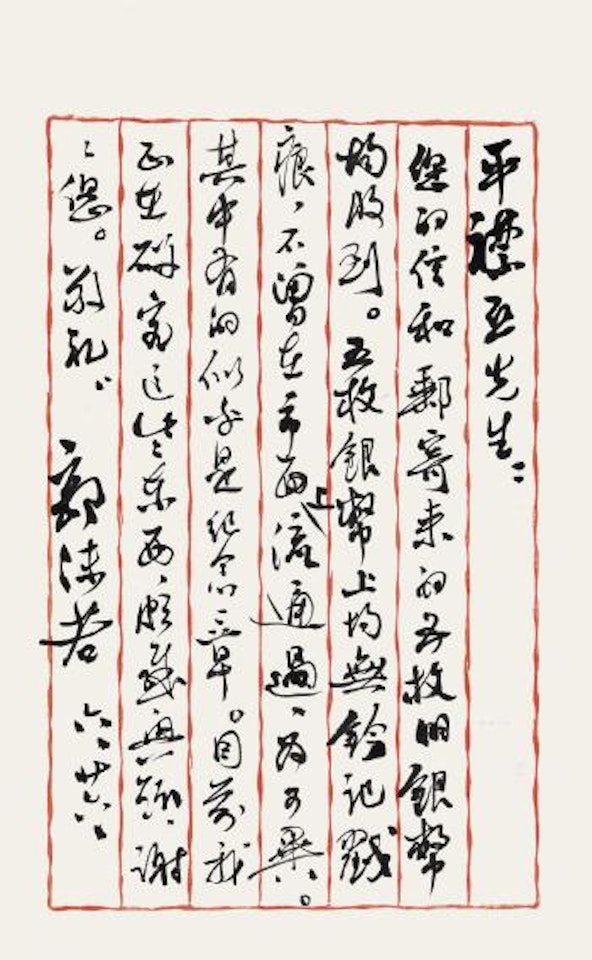 平襟亚先生：
您的信和郵寄来的五枚明銀幣
均收到。五枚銀幣上均無鈐記戳
痕，不曾在市面上流通過，为可異。
其中有的似乎是纪念章。目前我
正在研究这些东西，颇感興趣，謝
〻您。敬礼。
郭沫若 六、廿六、